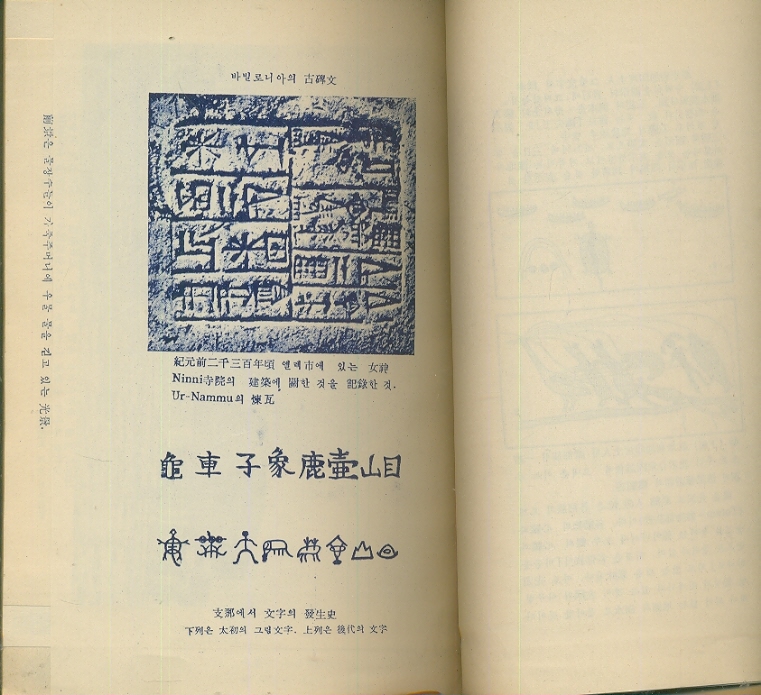 바빌로니아의 古碑文
紀元前二千三百年頃 엘렉市에 있는 女神
Ninni寺院의 建築에 關한 것을 記錄한 것.
Ur-Nammu의 煉瓦
龜 車 子 象 鹿 壷 山 目
支那에서 文字의 發生史
下列은 太初의 그림文字. 上列은 後代의 文字
은 물장수들이 가죽주머니에 우물 물을 긷고 있는 光景.